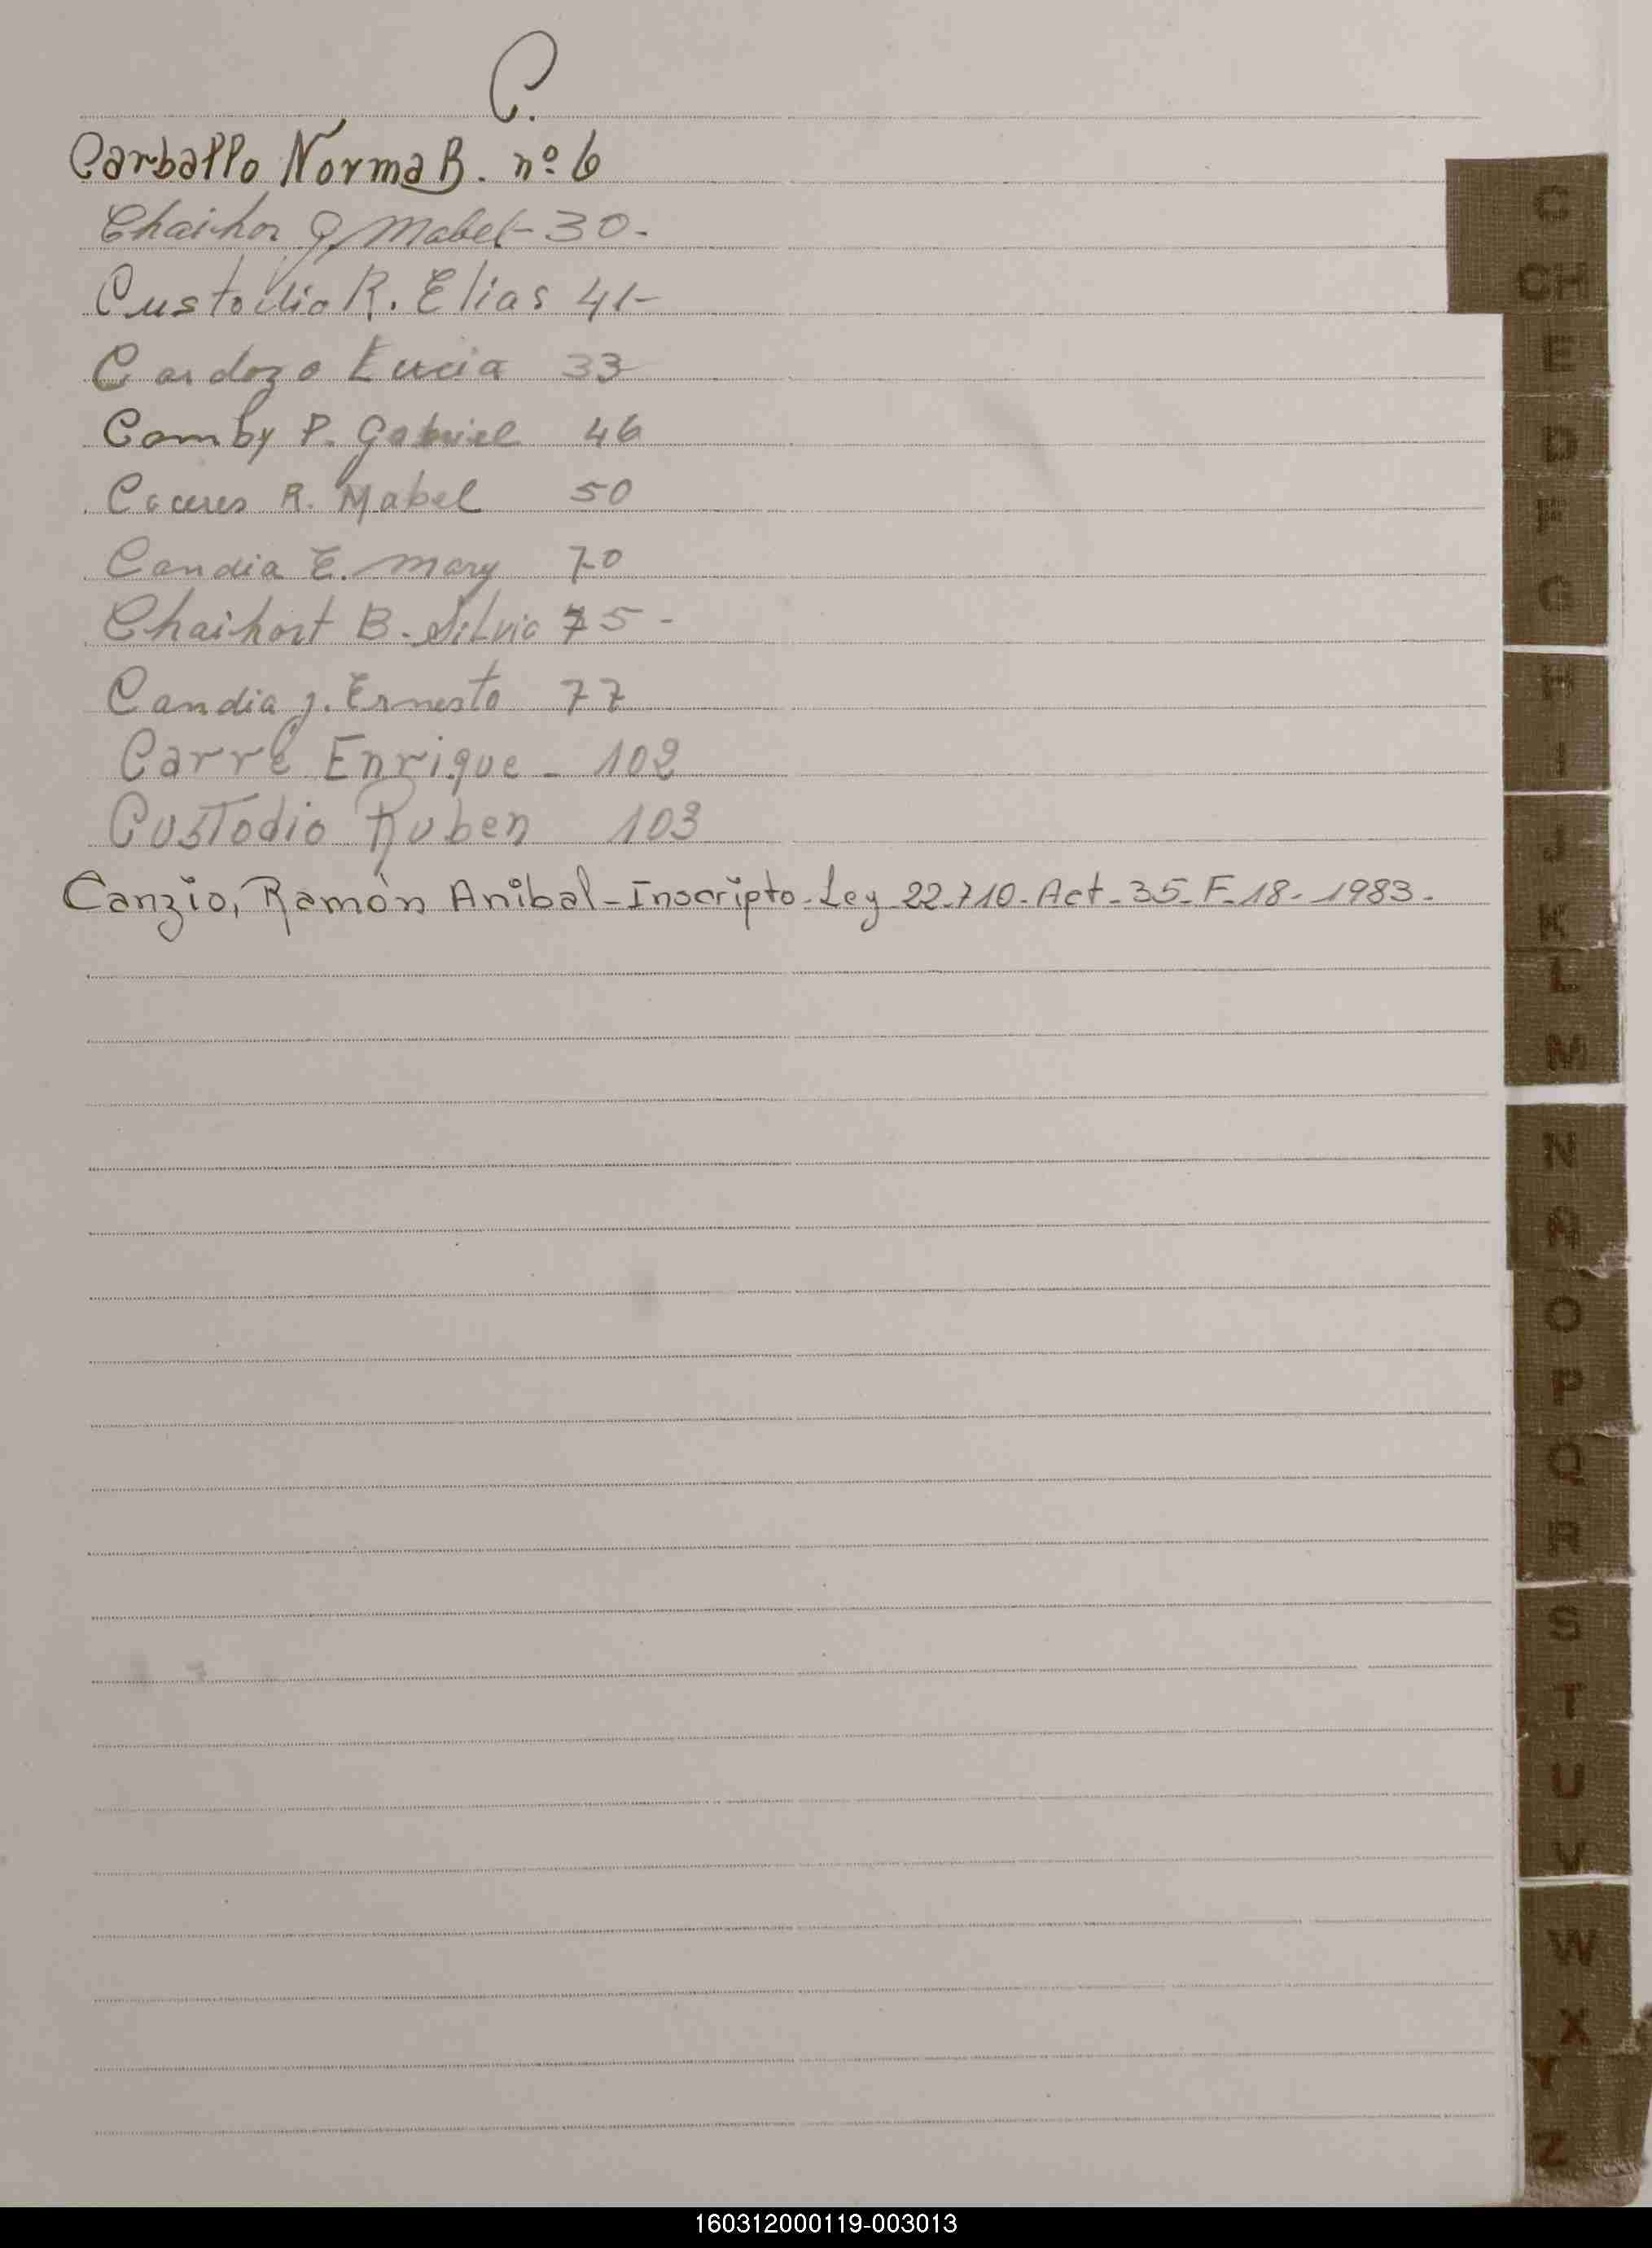 C.
Carballo Norma B. nº 6
Chaihor Q. Mabel - 30 -
Custodio R. Elias 41 -
Cardozo Lucia 33
Comby P. Gabriel 46
Caceres R. Mabel 50
Candia E. Mary 70
Chaihort B. Silvia 75 -
Candia J. Ernesto 77
Carré Enrique - 102
Custodio Ruben 103
Canzio, Ramón Anibal - Inscripto - Ley 22.710 - Act - 35 - F - 18 - 1983 -
C
CH
E
D
F
G
H
I
J
K
L
M
N
Ñ
O
P
Q
R
S
T
U
V
W
X
Y
Z
160312000119-003013